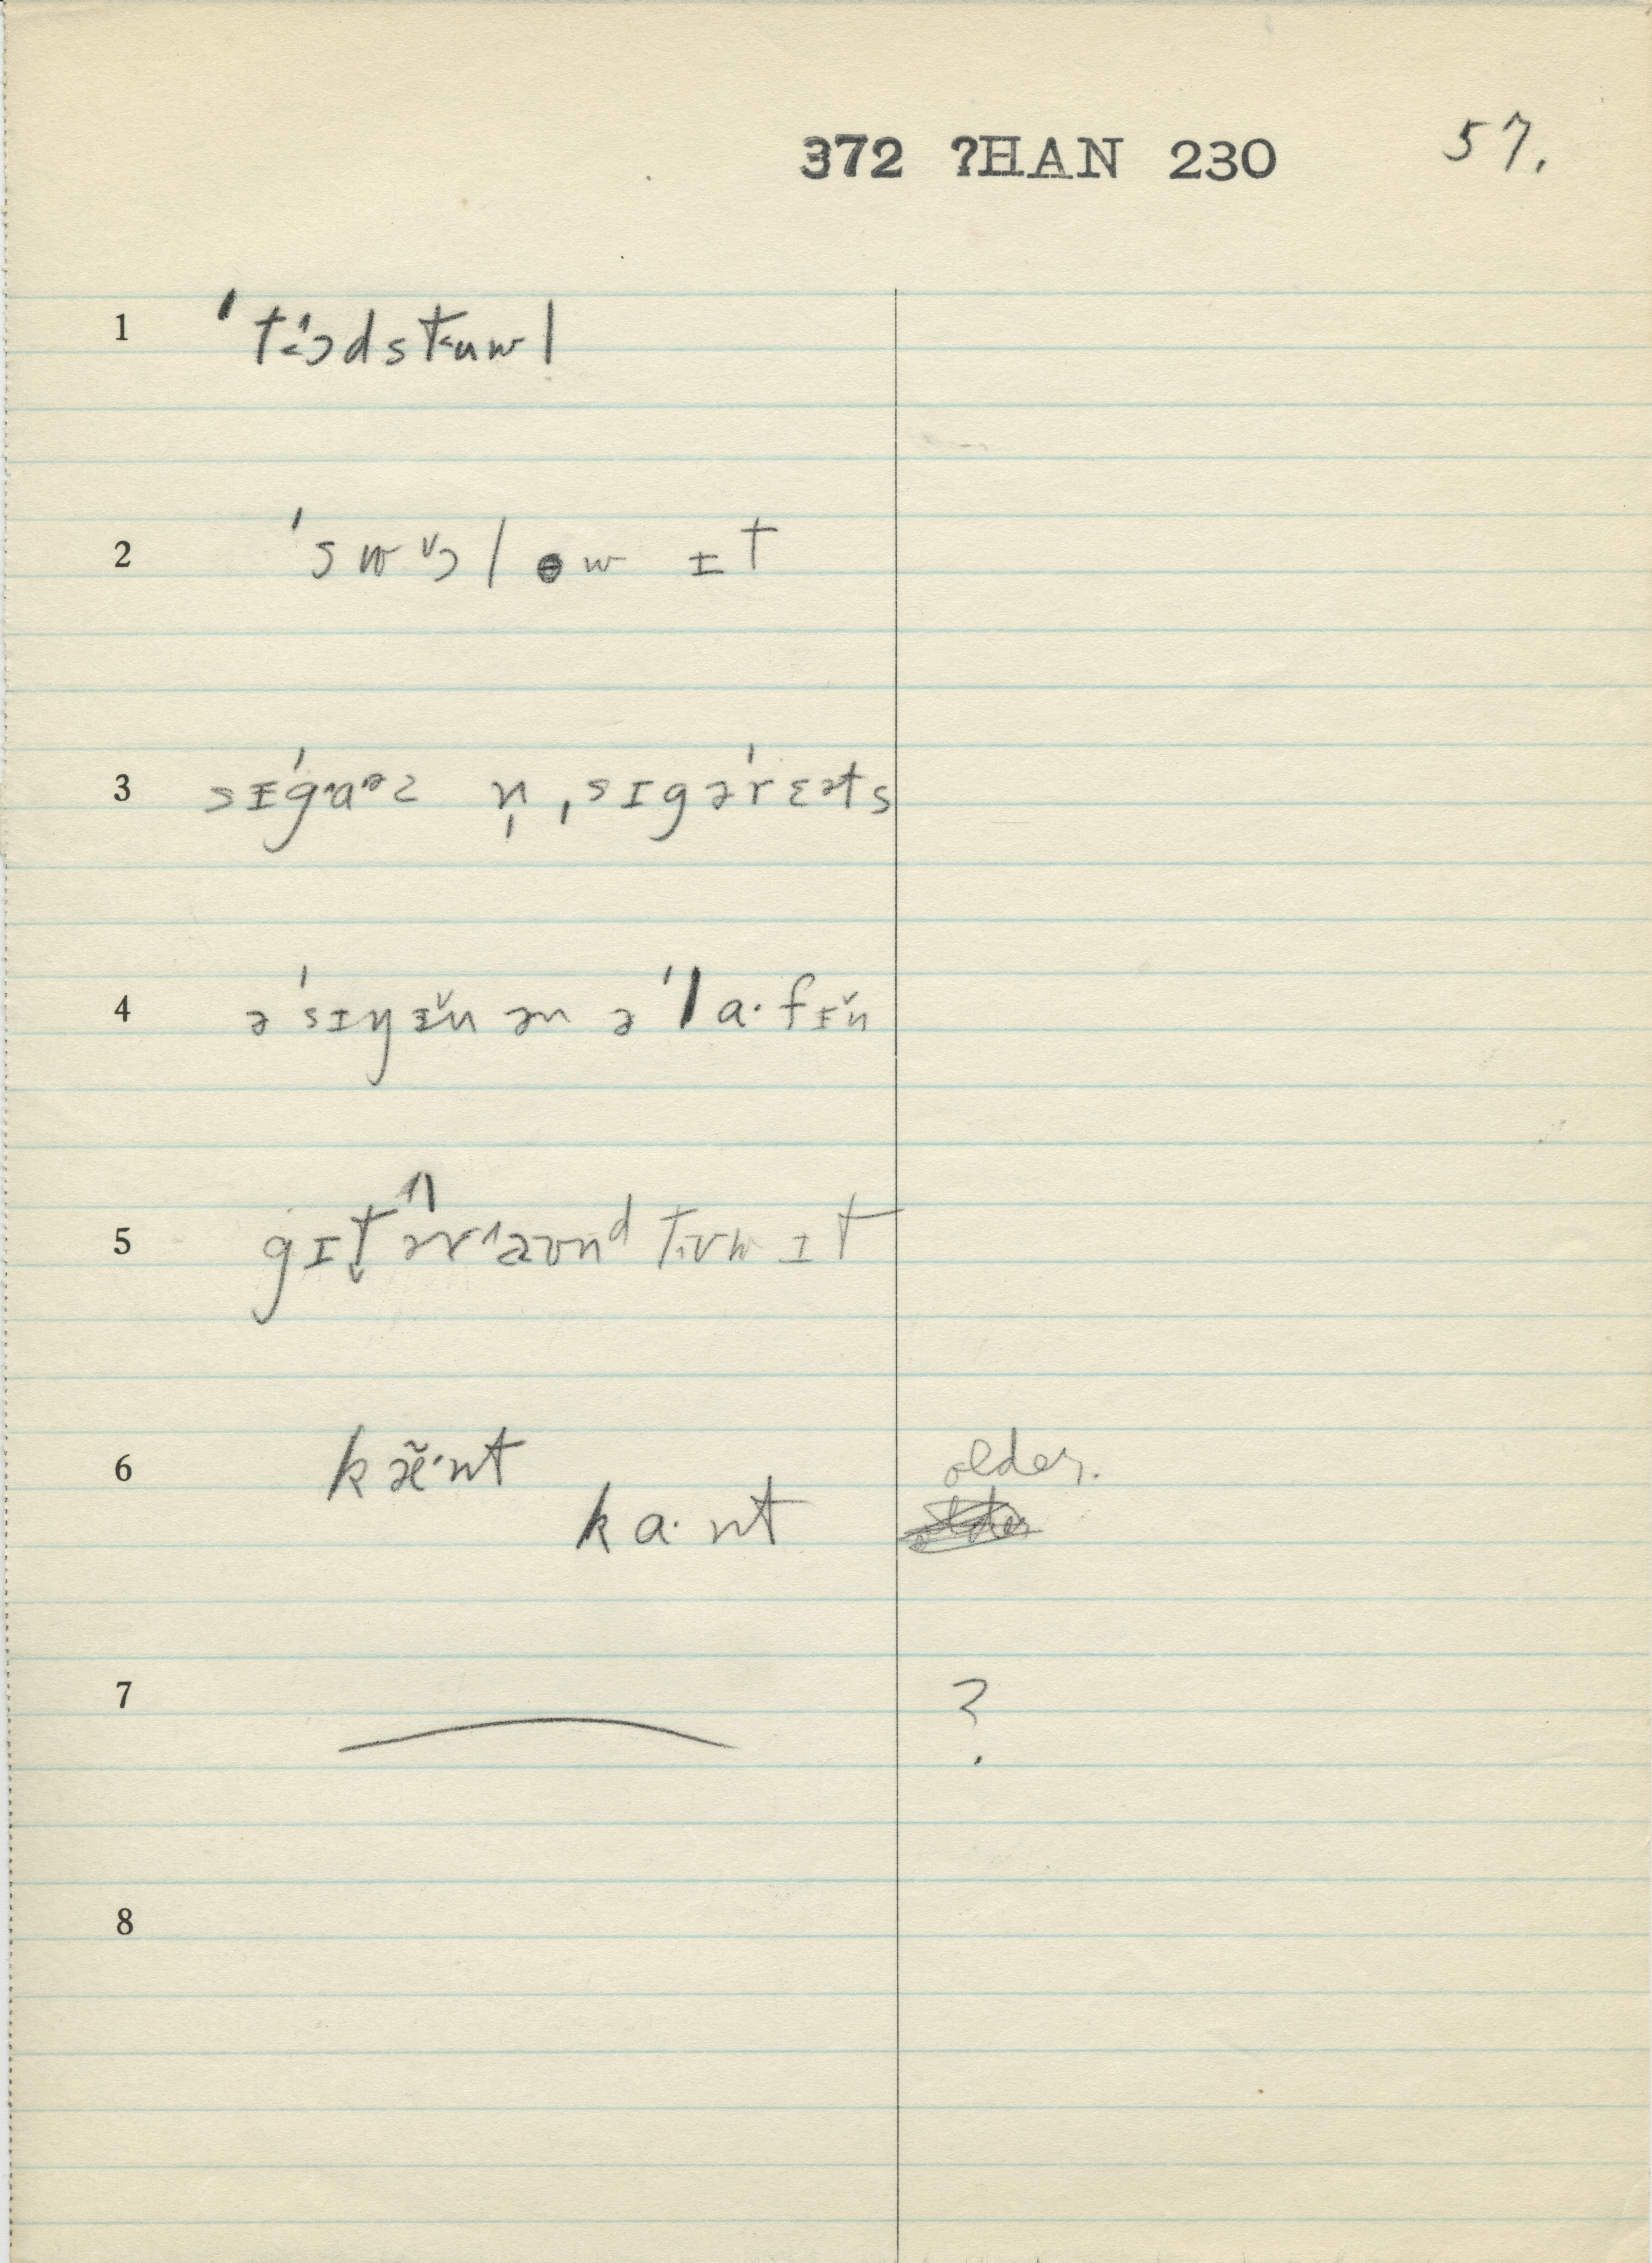 372 ?HAN 230 57.
1 ˈt˂ɔ˄dst˂ʉwl
2 ˈswɔ˅lɵw ɪt
3 sɪˈg˄aᵊz n̩ ˌsɪgəˈrɛᵊts
4 əˈsɪŋɪ̆n ən əˈla·fɪ̆n
5 gɪt̬ ər˄aʊnᵈ tɪʊw ɪt
6 kæ̃·nt older.
ka·nt
7 ?
8